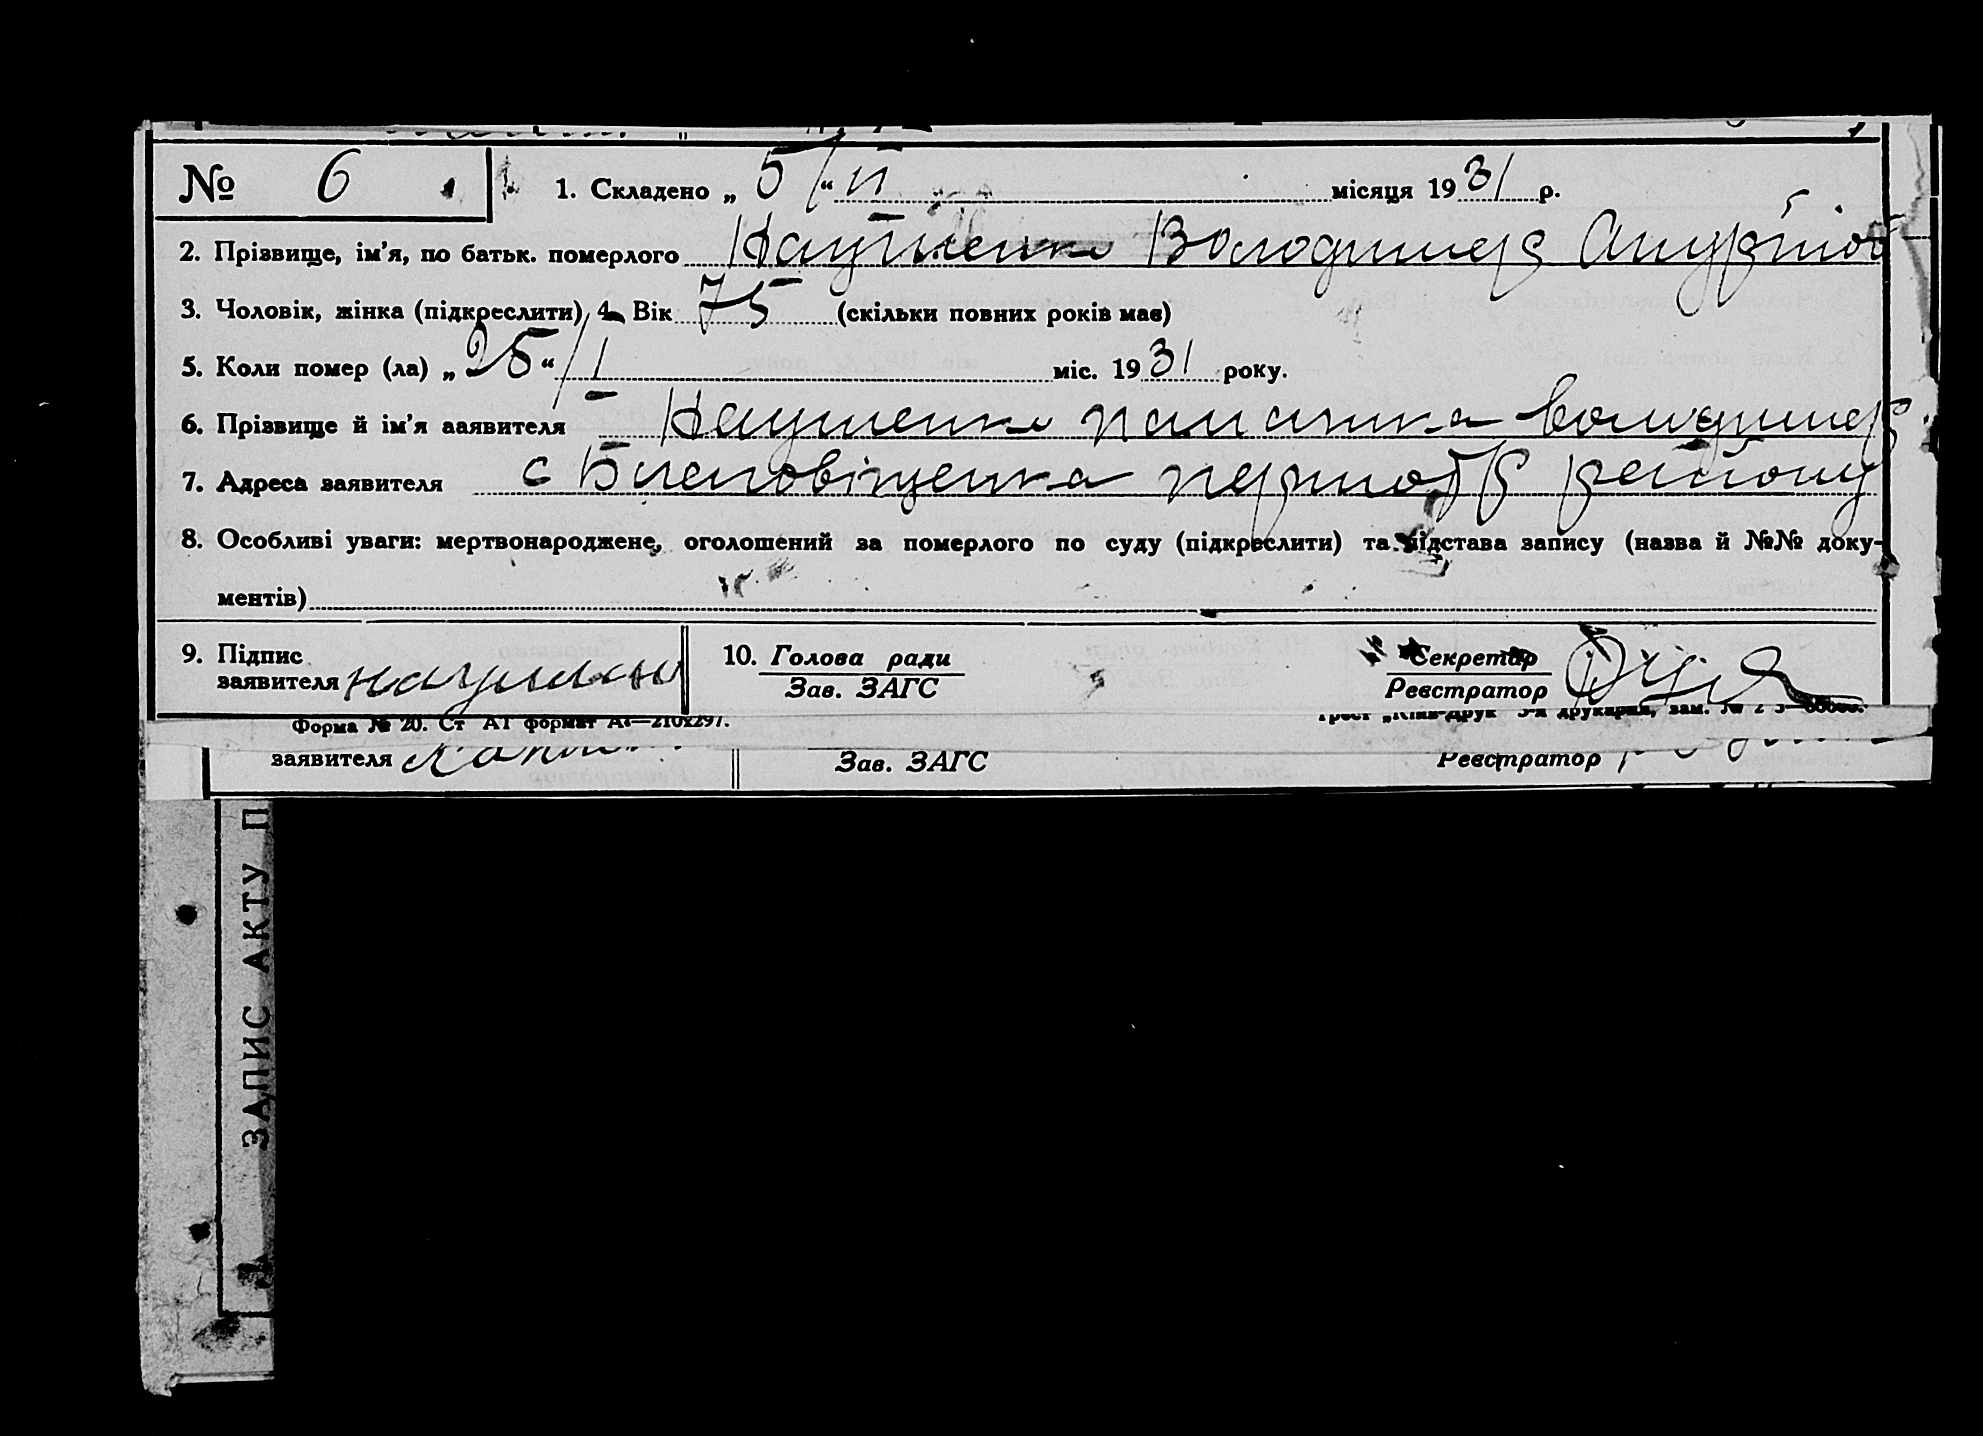 № 6 1. Складено „ 5 “ ІІ місяця 1931 р.
2. Прізвище, ім’я, по батьк. померлого Науменко Володимер
3. Чоловік, жінка (підкреслити) 4. Вік 75 (скільки повних років має)
5. Коли помер (ла) „ 25 “ / І міс. 1931 року.
6. Прізвище й ім’я заявителя Науменко
7. Адреса заявителя с району
8. Особливі уваги: мертвонароджене, оголошений за померлого по суду (підкреслити) та підстава запису (назва й №№ доку-
ментів)
9. Підпис
заявителя
10. Голова ради
Зав. ЗАГС
Секретар
Реєстратор
Форма № 20. Ст А1 формат А4—210х297.
заявителя
Зав. ЗАГС
Реєстратор
ЗАПИС АКТУ П